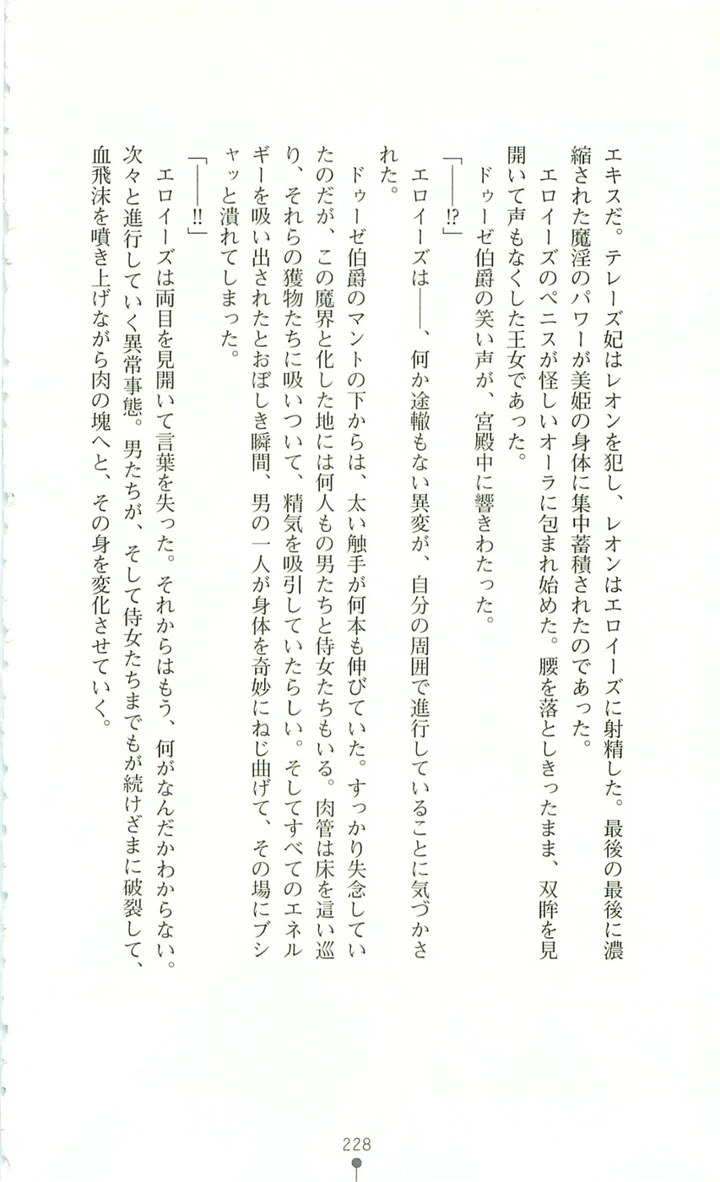 エキスだ。テレーズ妃はレオンを犯し、レオンはエロイーズに射精した。最後の最後に濃
縮された魔淫のパワーが美姫の身体に集中蓄積されたのであった。
　エロイーズのペニスが怪しいオーラに包まれ始めた。腰を落としきったまま、双眸を見
開いて声もなくした王女であった。
　ドゥーゼ伯爵の笑い声が、宮殿中に響きわたった。
「――⁉」
　エロイーズは――、何か途轍もない異変が、自分の周囲で進行していることに気づかさ
れた。
　ドゥーゼ伯爵のマントの下からは、太い触手が何本も伸びていた。すっかり失念してい
たのだが、この魔界と化した地には何人もの男たちと侍女たちもいる。肉管は床を這い巡
り、それらの獲物たちに吸いついて、精気を吸引していたらしい。そしてすべてのエネル
ギーを吸い出されたとおぼしき瞬間、男の一人が身体を奇妙にねじ曲げて、その場にブシ
ャッと潰れてしまった。
「――‼」
　エロイーズは両目を見開いて言葉を失った。それからはもう、何がなんだかわからない。
次々と進行していく異常事態。男たちが、そして侍女たちまでもが続けざまに破裂して、
血飛沫を噴き上げながら肉の塊へと、その身を変化させていく。
228